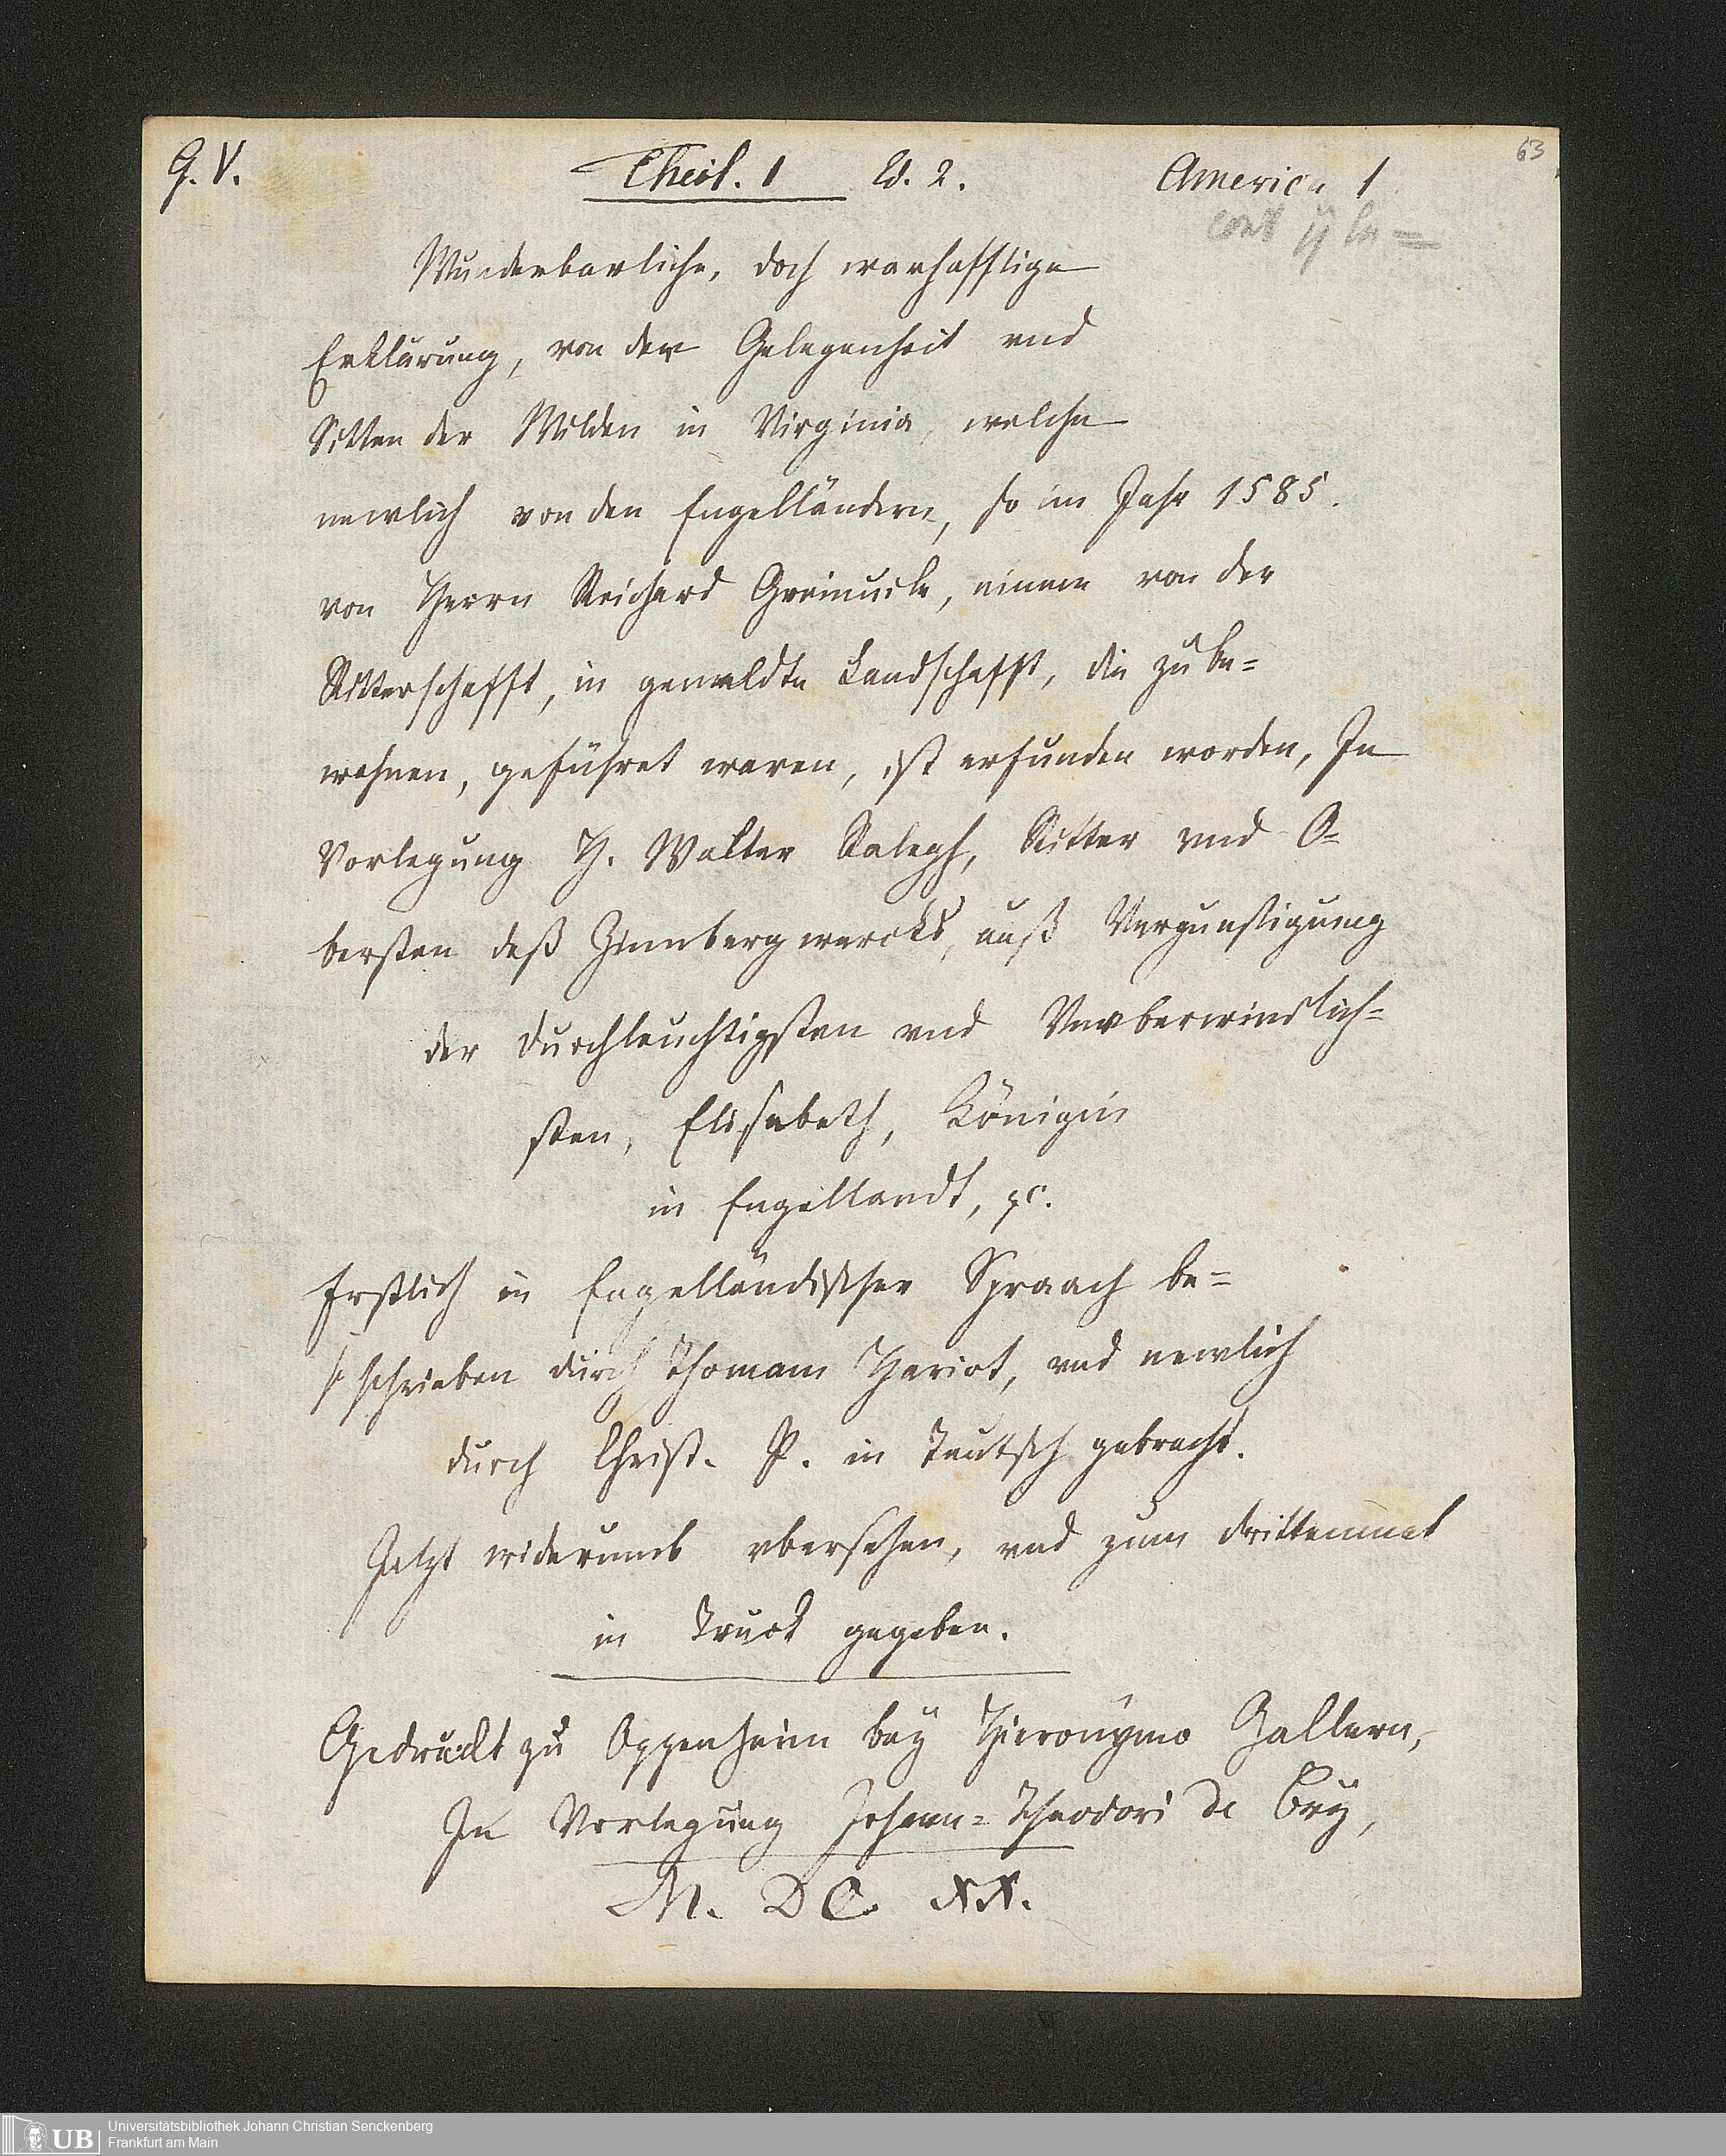 G. V. Theil. 1 Ed. 2. America 1 63
Wunderbarliche, doch warhafftige
Erklärung, von der Gelegenheit vnd
Sitten der Wilden in Virginia, welche
newlich von den Engelländern, so im Jahr 1585.
von Herrn Reichard Greinuile, einem von der
Ritterschafft, in gemeldte Landschafft, die zu be=
wohnen, geführet waren, ist erfunden worden, In
Verlegung H. Walter Ralegh, Ritter vnd O=
bersten deß Zinnbergwercks, auß Vergunstigung
der Durchleuchtigsten vnd Vnvberwindlich=
sten, Elisabeth, Königin
in Engellandt, ꝛc.
Erstlich in Engelländischer Spraach be=
schrieben durch Thomam Hariot, vnd newlich
durch Christ. P. in Teutsch gebracht.
Jetzt widerumb vbersehen, vnd zum drittenmal
in Truck gegeben.
Gedruckt zu Oppenheim bey Hieronymo Gallern,
In Verlegung Johann=Theodori de Bry,
M. DC. XX.
UB Universitätsbibliothek Johann Christian Senckenberg
Frankfurt am Main